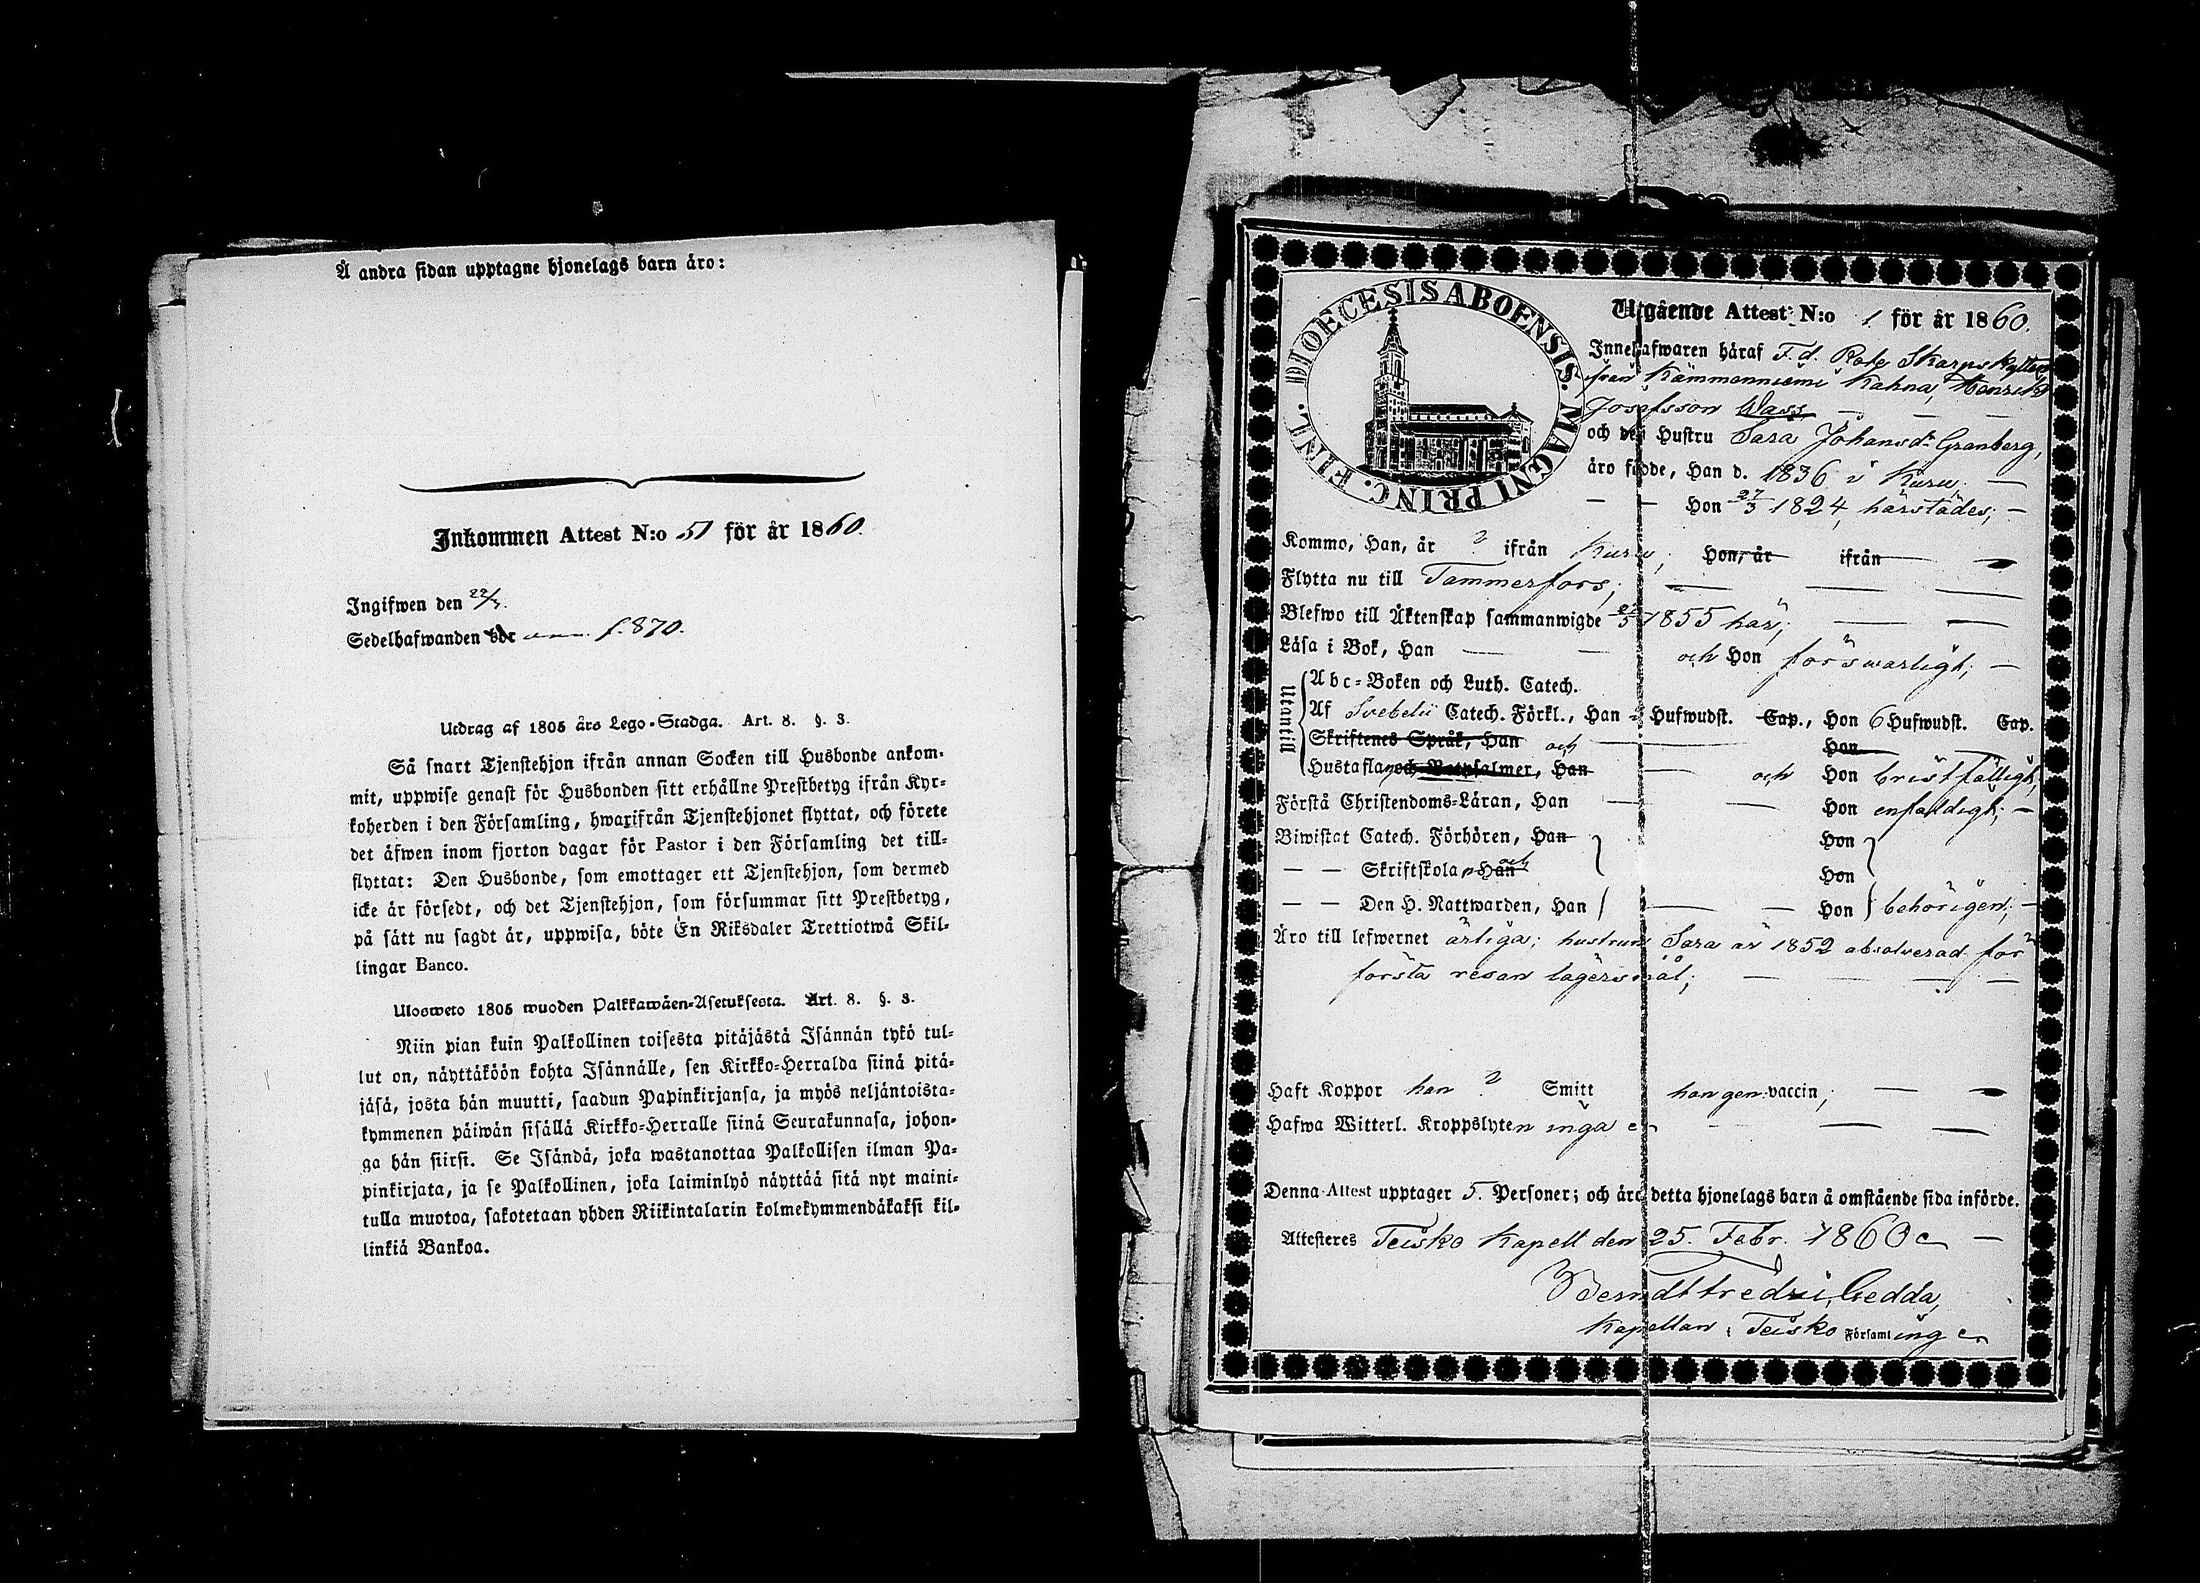 Å andra sidan upptagne hjonelags barn äro:
Inkommen Attest N:o 51 för år 1860.
Ingifwen den 22/3.
Sedelhafwanden bör ann. f. 870.
Utdrag af 1805 års Lego-Stadga. Art. 8. §. 3.
Så snart Tjenstehjon ifrån annan Socken till Husbonde ankom-
mit, uppwise genast för Husbonden sitt erhållne Prestbetyg ifrån Kyr-
koherden i den Församling, hwarifrån Tjenstehjonet flyttat, och förete
det äfwen inom fjorton dagar för Pastor i den Församling det till-
flyttat: Den Husbonde, som emottager ett Tjenstehjon, som dermed
icke är försedt, och det Tjenstehjon, som försummar sitt Prestbetyg,
på sätt nu sagdt är, uppwisa, böte En Riksdaler Trettiotwå Skil-
lingar Banco.
Ulosweto 1805 wuoden Palkkawäen-Asetuksesta. Art. 8. §. 3.
Niin pian kuin Palkollinen toisesta pitäjästä Isännän tykö tul-
lut on, näyttäköön kohta Isännälle, sen Kirkko-Herralda siinä pitä-
jäsä, josta hän muutti, saadun Papinkirjansa, ja myös neljäntoista-
kymmenen päiwän sisällä Kirkko-Herralle siinä Seurakunnasa, johon-
ga hän siirsi. Se Isändä, joka wastanottaa Palkollisen ilman Pa-
pinkirjata, ja se Palkollinen, joka laiminlyö näyttää sitä nyt maini-
tulla muotoa, sakotetaan yhden Riikintalarin kolmekymmendäkaksi kil-
linkiä Bankoa.
DIOECESIS ABOENSIS. MAGNI PRINC. FINL.
Utgående Attest N:o 1 för år 1860.
Innehafwaren häraf F. d. Rote Skarpskytten
från Kämmenniemi Kahna, Henrik
Josefsson Wass, — — —
och des Hustru Sara Johansdr Granberg,
äro födde, Han d. 1836 i Kuru. —
— — Hon 27/3 1824, härstädes; —
Kommo, Han, år ? ifrån Kuru; Hon, år ifrån —
Flytta nu till Tammerfors; — — —
Blefwo till Äktenskap sammanwigde 1855 här; — —
Läsa i Bok, Han — — och Hon förswarligt; —
Utantill
Abc-Boken och Luth. Catech.
Af Svebelii Catech. Förkl., Han Hufwudst. Cap., Hon 6 Hufwudst. Cap.
Skriftenes Språk, Han och — Hon —
Hustafla, och Botpsalmer, Han — och Hon bristfälligt,
Förstå Christendoms-Läran, Han — — Hon enfaldigt; —
Biwistat Catech. Förhören, Han Hon
— — Skriftskola, Han och Hon
— — Den H. Nattwarden, Han — — Hon behörigen; —
Äro till lefwernet ärliga; hustrun Sara är 1852 absolverad för
första resan lägersmål; — — —
Haft Koppor han ? Smitt hon gen. vaccin; — —
Hafwa Witterl. Kroppslyten inga — — —
Denna Attest upptager 5. Personer; och äro detta hjonelags barn å omstående sida införde.
Attesteres Teisko Kapell den 25. Febr. 1860 —
Berndt Fredr. Gedda,
Kapellan i Teisko Församling